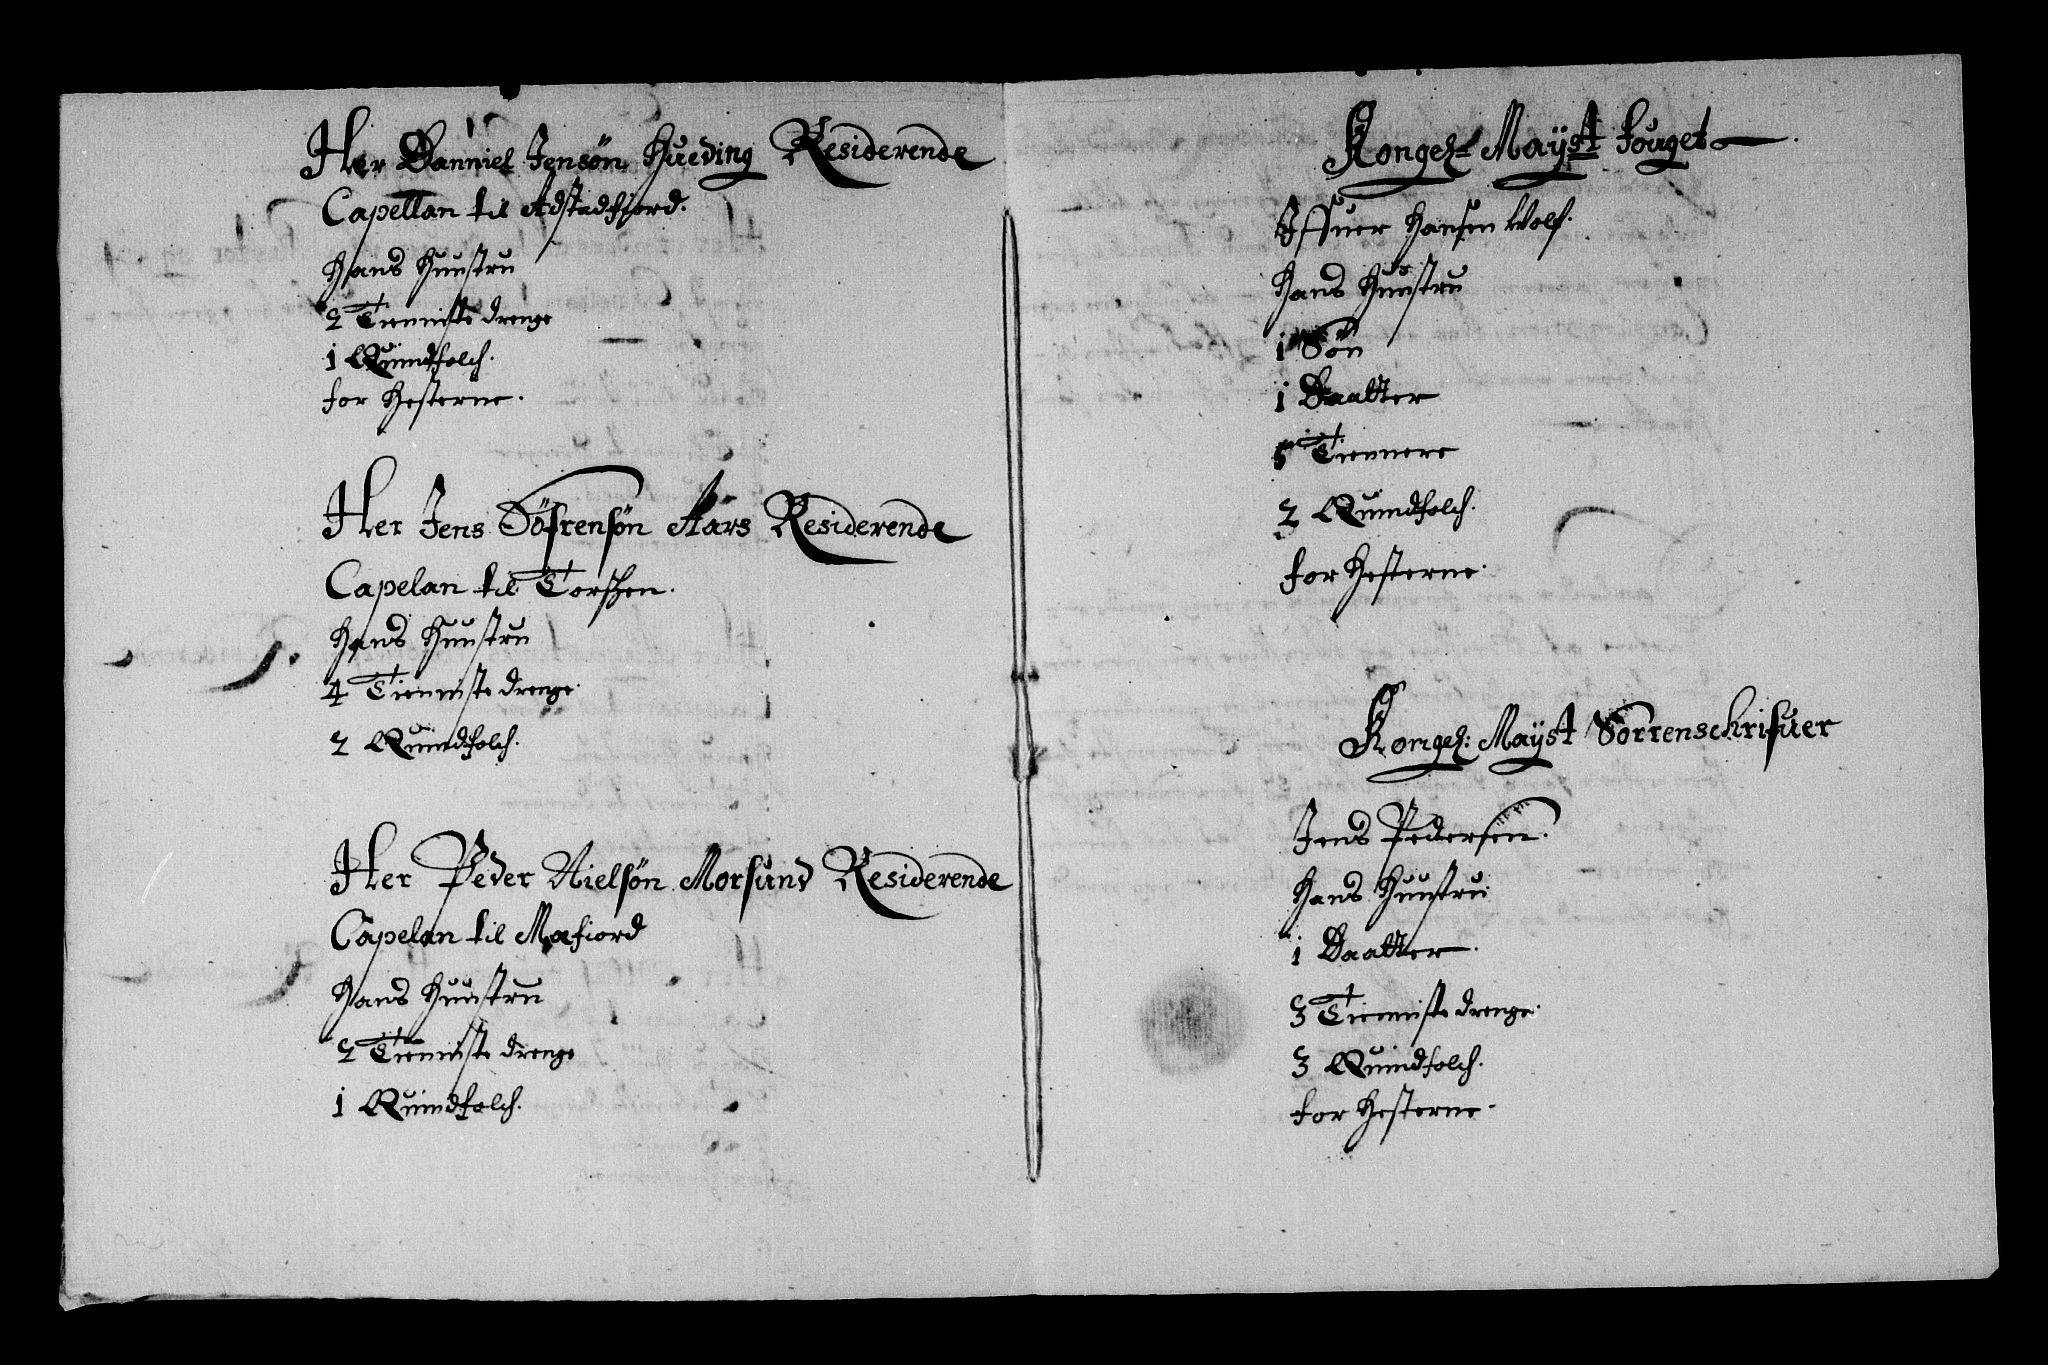 Her Danniel Jensøn Hueding Residerende
Capellan til Adstadfjord.
Hans Huustru
2 Tienniste drenge
1 Quindfolch.
for Hesterne.
Her Jens Söfrensøn Aars Residerende
Capelan til Torshen.
Hans Huustru
4 Tienniste drenge
2 Quindfolch.
Her Peder Nielsøn Morsund Residerende
Capelan til Mafiord
Hans Huustru
2 Tienniste drenge
1 Quindfolch.
Kongel: Mayst fouget
Iffuer Hansen Wolf.
Hans Huustru
1 Søn
1 Daatter
5 Tiennere
2 Quindfolch.
for Hesterne.
Kongel: Mayst Sorrenschrifuer
Jens Pedersen.
Hans Huustru
1 Daatter.
3 Tienniste drenge.
3 Quindfolch.
for Hesterne.